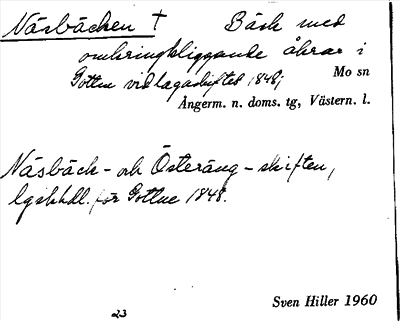 Näsbäcken † Bäck med
omkringliggande åkrar i
Gottne vid lagaskiftet 1848;
Mo sn
Ångerm. n. doms. tg, Västern. l.
Näsbäck- och Österäng-skiften,
lgskhdl. för Gottne 1848.
Sven Hiller 1960
23